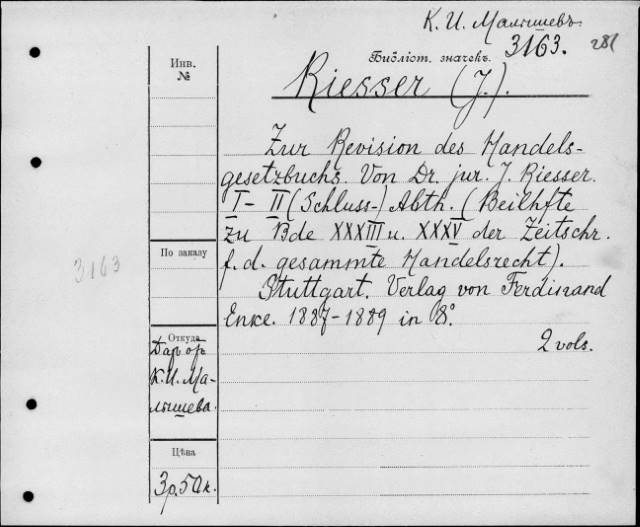 К. И. Малышевъ
Инв.
№
Библіот. значекъ.
3163.
281
Riesser (J.).
Zur Revision des Handels-
gesetzbuchs. Von Dr. jur. J. Riesser.
I-II (Schluss-) Abth. (Beilhfte
zu Bde XXXIII u. XXXV der Zeitschr.
f. d. gesammte Handelsrecht).
Stuttgart. Verlag von Ferdinand
Enke. 1887-1889 in 8°.
2 vols.
По заказу
3163
Откуда
Даръ отъ
К. И. Ма-
лышева.
Цѣна
3р.50к.